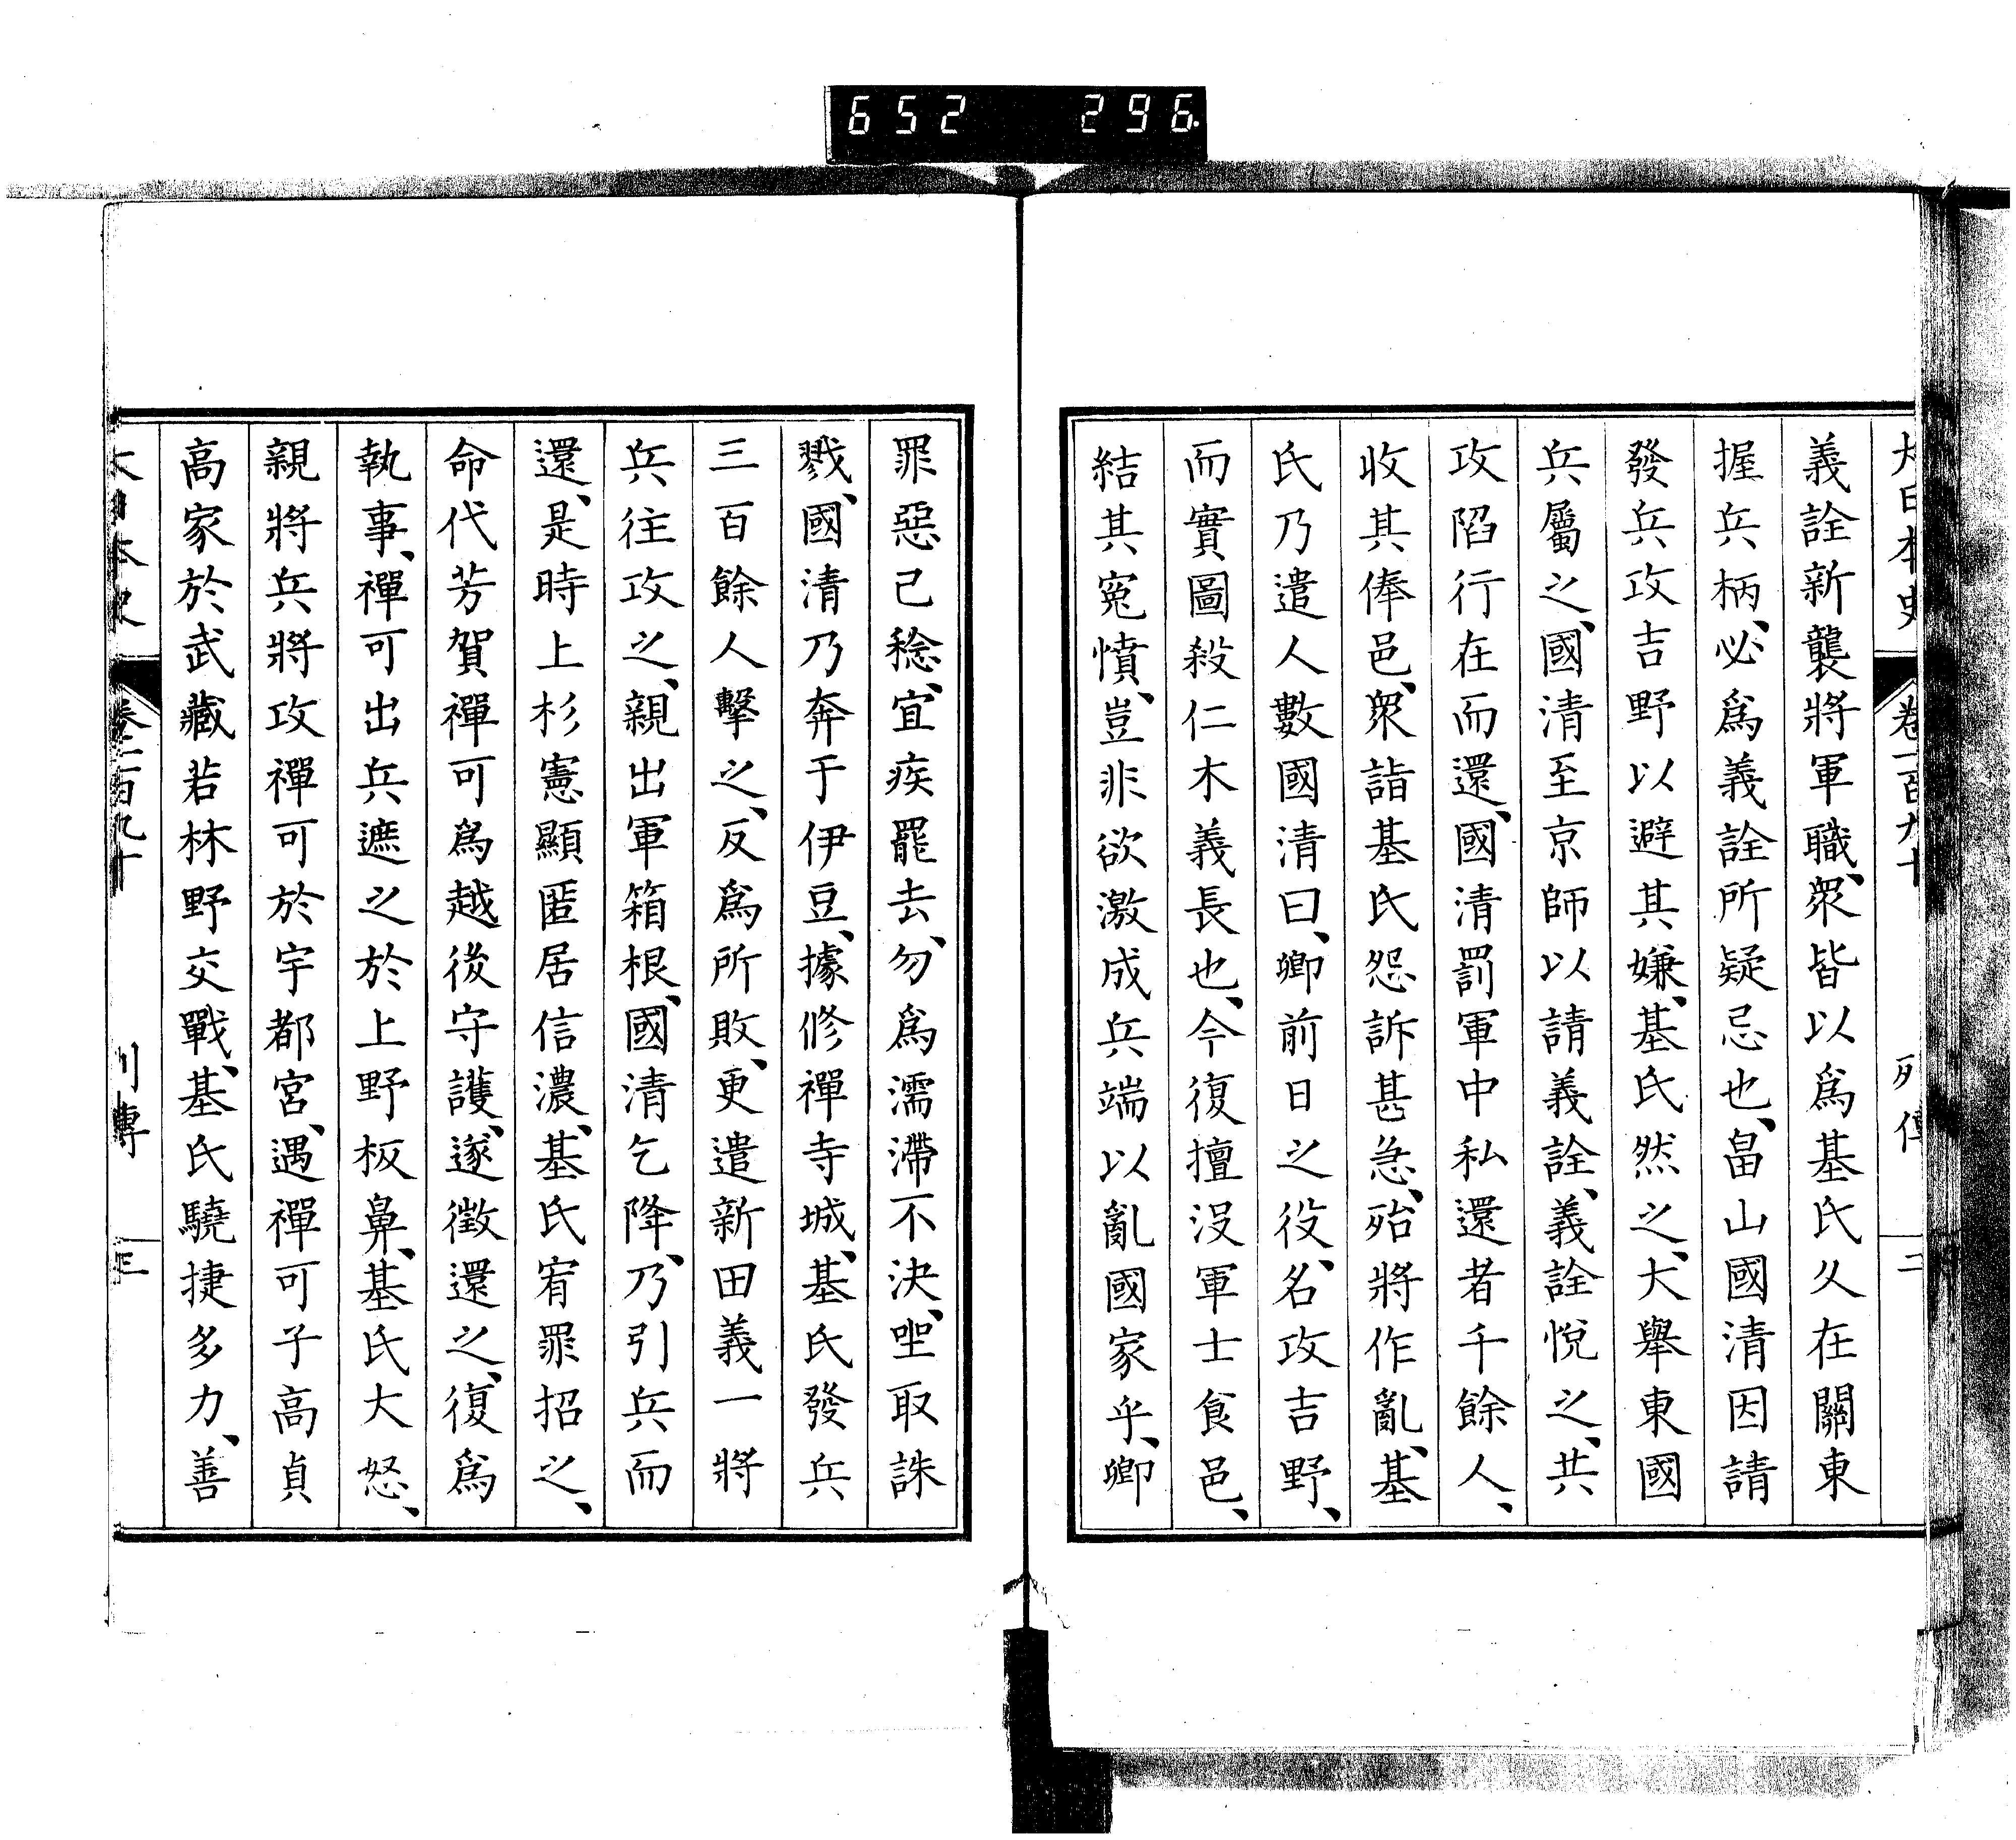 652 296
大日本史 卷一百九十 列傳 二
義詮新襲將軍職、衆皆以爲基氏久在關東
握兵柄、必爲義詮所疑忌也、畠山國清因請
發兵攻吉野以避其嫌、基氏然之、大舉東國
兵屬之、國清至京師以請義詮、義詮悅之、共
攻陷行在而還、國清罰軍中私還者千餘人、
收其俸邑、衆詣基氏怨訴甚急、殆將作亂、基
氏乃遣人數國清曰、卿前日之役、名攻吉野、
而實圖殺仁木義長也、今復擅沒軍士食邑、
結其冤憤、豈非欲激成兵端以亂國家乎、卿
罪惡已稔、宜疾罷去、勿爲濡滯不決、坐取誅
戮、國清乃奔于伊豆、據修禪寺城、基氏發兵
三百餘人擊之、反爲所敗、更遣新田義一將
兵往攻之、親出軍箱根、國清乞降、乃引兵而
還、是時上杉憲顯匿居信濃、基氏宥罪招之、
命代芳賀禪可爲越後守護、遂徵還之、復爲
執事、禪可出兵遮之於上野板鼻、基氏大怒、
親將兵將攻禪可於宇都宮、遇禪可子高貞
高家於武藏若林野交戰、基氏驍捷多力、善
大日本史 卷一百九十 列傳 三